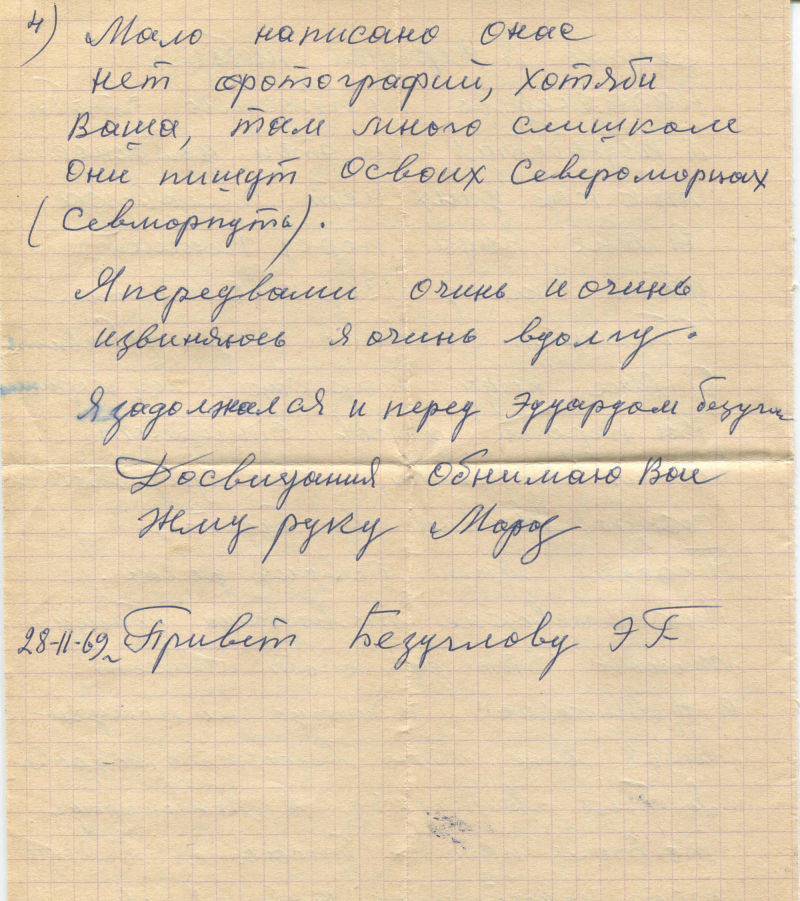 4) Мало написано онас
нет фотографий, хотяби
Ваша, там много слишком
они пишут освоих Североморцах
(Севморпуть).
Япередвами очинь и очинь
извиняюсь я очинь вдолгу.
Я задолжался и перед Эдуардом
Досвидания Обнимаю Вас
Жму руку Мороз
28-II-69г Привет Безуглову ЭГ